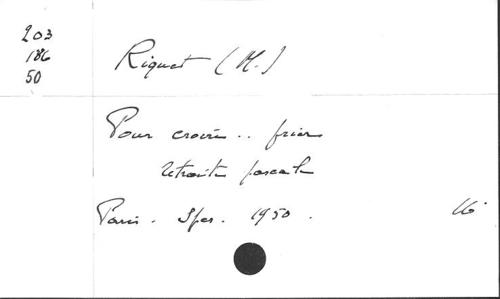 203
186
50
Riquet (M.)
Pour croire.. prier
retraite pascale
Paris. Spes. 1950. 16°